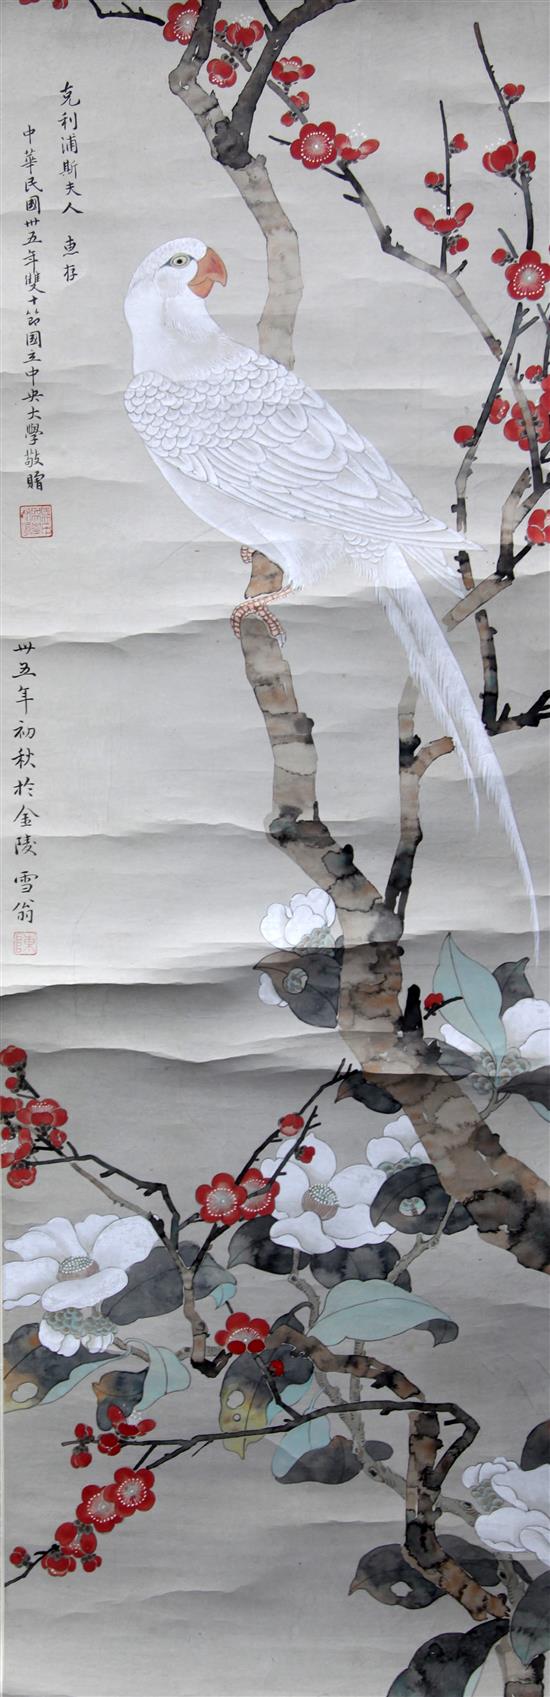 克利浦斯夫人 惠存
中華民國卅五年雙十節國立中央大學敬贈
卅五年初秋於金陵 雪翁
陳